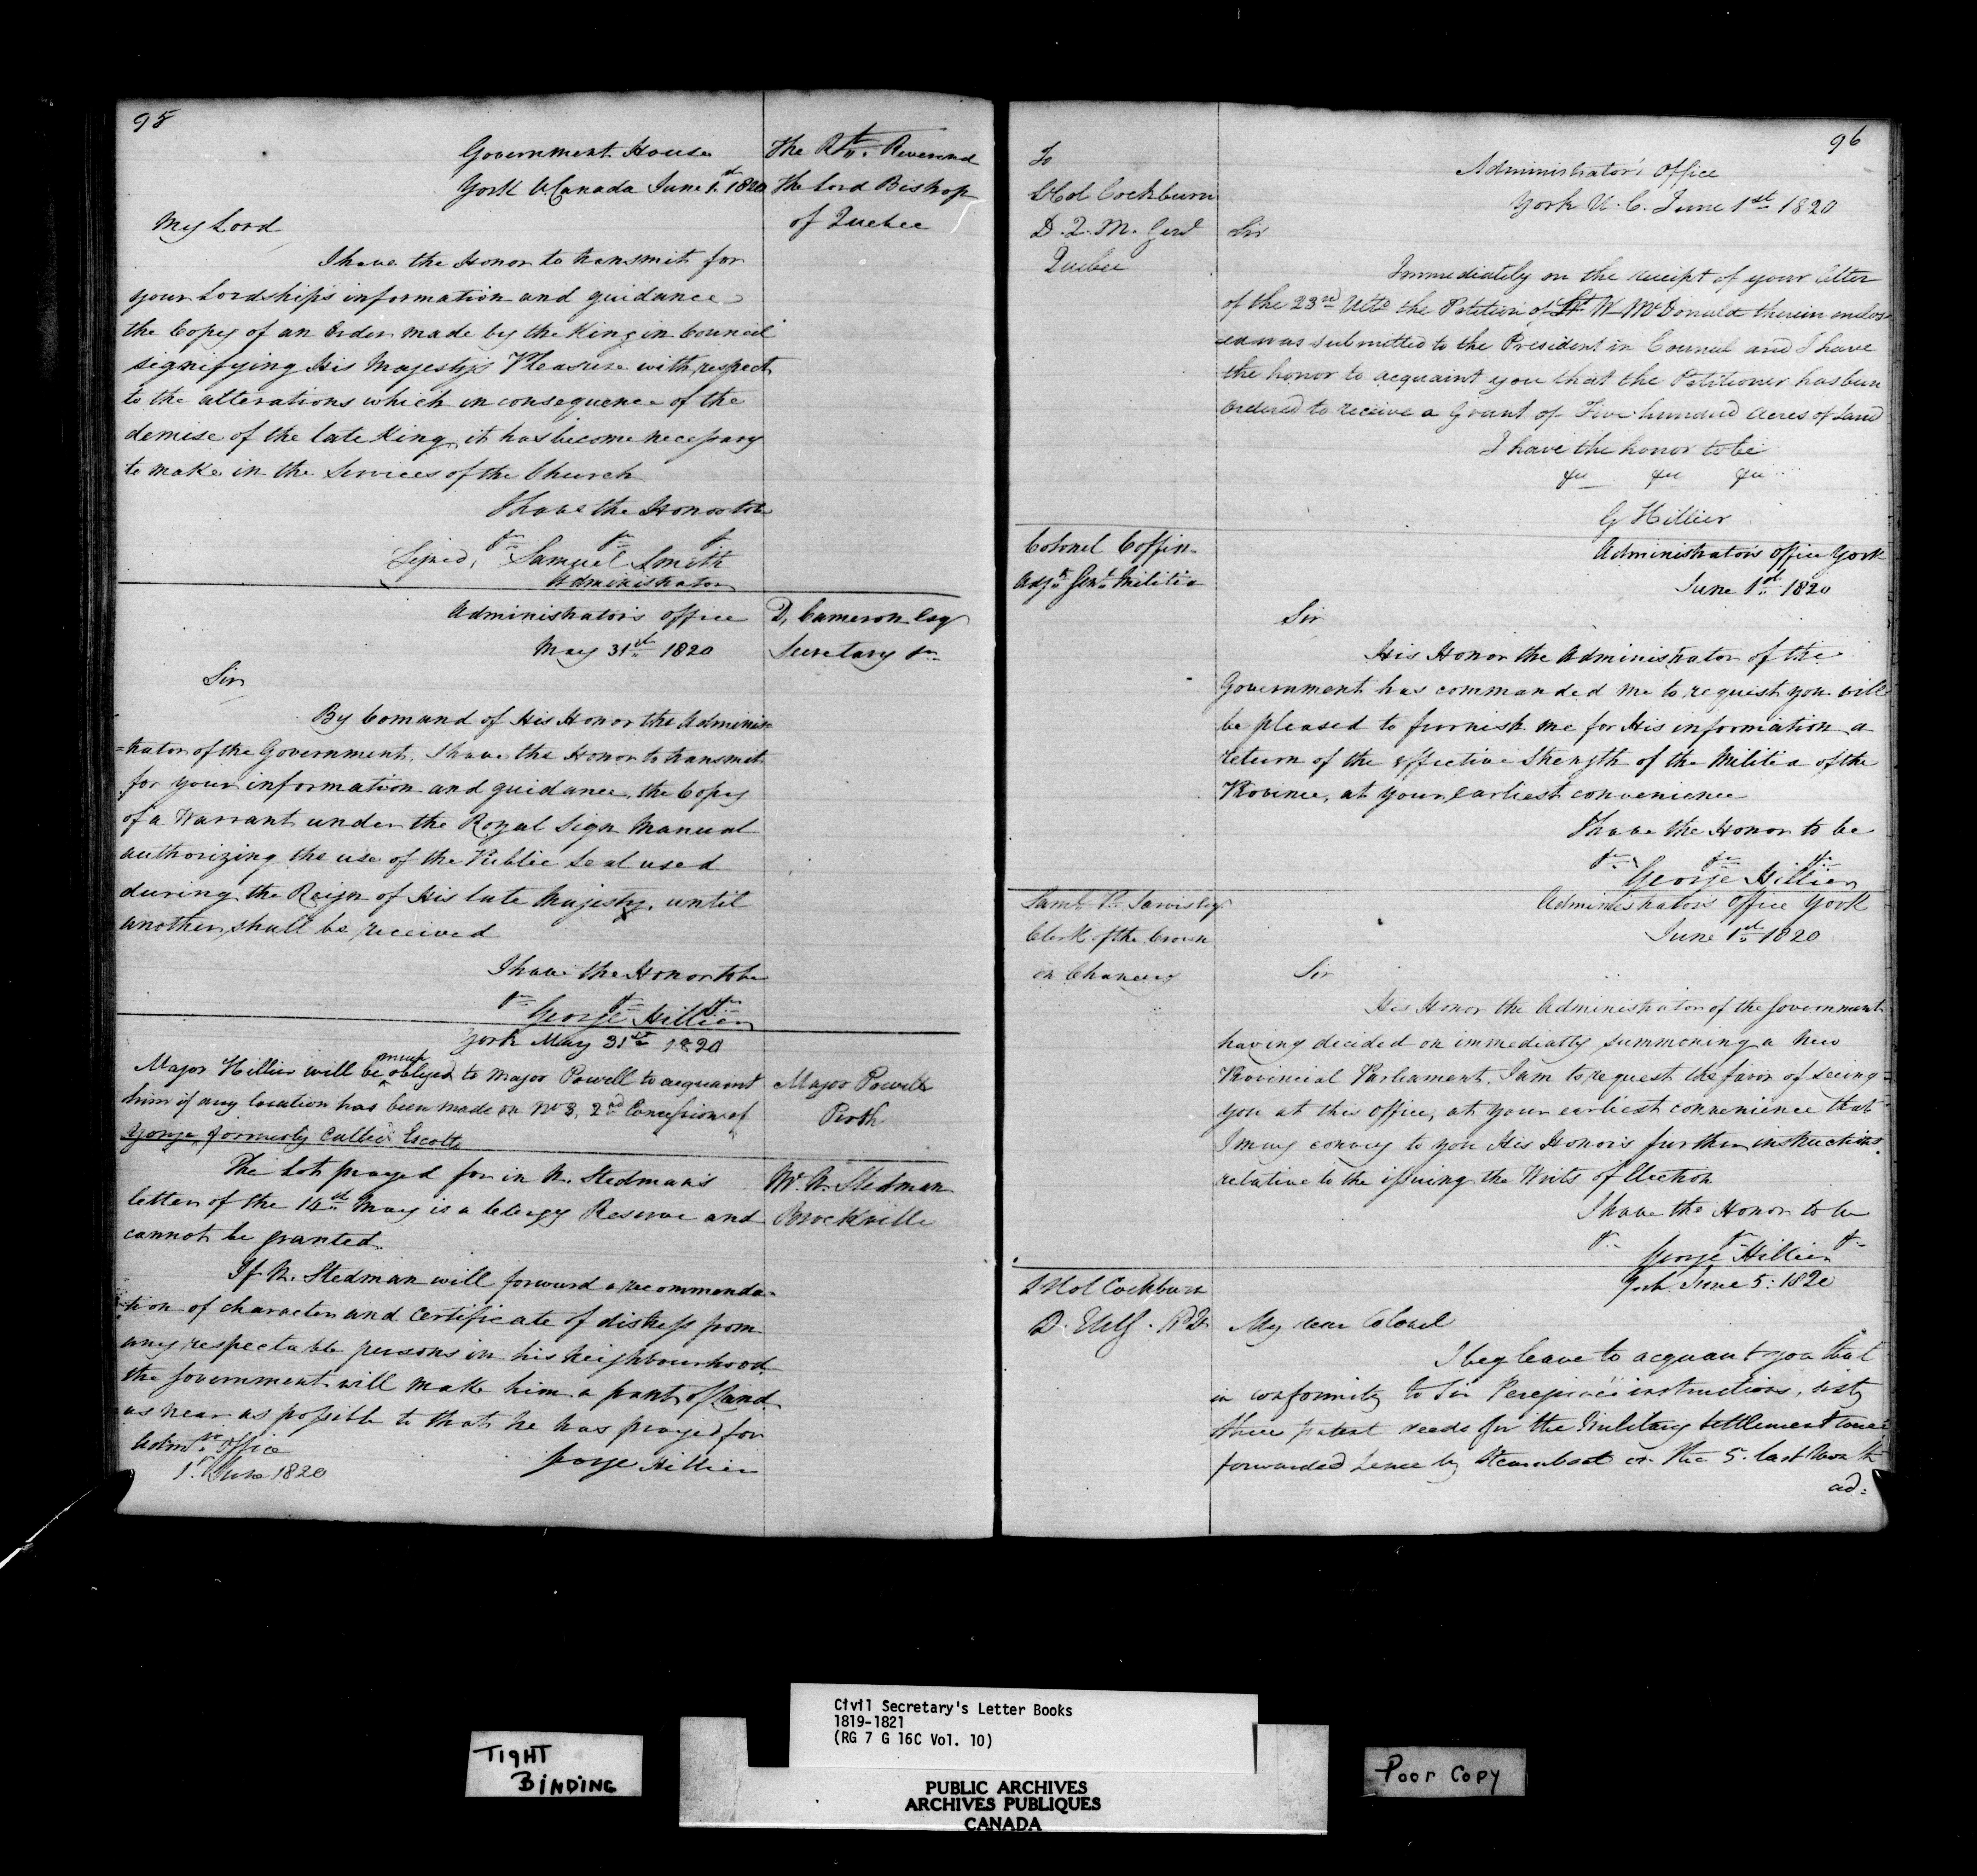 95
Government House
York U. Canada June 1st 1820
The Rt. Reverend
The Lord Bishop
of Quebec
My Lord
I have the Honor to transmit for
your Lordship's information and guidance
the Copy of an Order made by the King in Council
signifying His Majesty's Pleasure with respect
to the alterations which in consequence of the
demise of the late King it has become necessary
to make in the Services of the Church
I have the Honor to be
&c &c &c
Signed, Samuel Smith
Administrator
Administrator's office
May 31st 1820
D, Cameron Esq
Secretary &c
Sir
By Comand of His Honor the Adminis=
=trator of the Government, I have the Honor to transmit
for your information and guidance, the Copy
of a Warrant under the Royal Sign Manual
authorizing the use of the Public Seal used
during the Reign of His late Majesty, until
another shall be received
I have the Honor to be
&c &c &c
George Hillier
York May 31st 1820
Major Hillier will be much obliged to Major Powell to acquaint
him if any location has been made on No 3, 2nd Concession of
Yonge, formerly Called Escott
Major Powell
Perth
The Lot prayed for in N. Stedman's
letter of the 14th May is a Clergy Reserve and
cannot be granted.
Mr N. Stedman
Brockville
If N. Stedman will forward a recommenda-
-tion of character and Certificate of distress from
any respectable persons in his neighbourhood
the Government will make him a grant of Land
as near as possible to that he has prayed for
Admrs Office
1st June 1820
George Hillier
96
To
Lt Col Cockburn
D. Q. M. Genl
Quebec
Administrator's Office
York U. C. June 1st 1820
Sir
Immediately on the receipt of your letter
of the 23rd Ulto the Petition of Lt W McDonald therein enclos
ed was submitted to the President in Council and I have
the honor to acquaint you that the Petitioner has been
Ordered to receive a Grant of Five hundred Acres of Land
I have the honor to be
&c &c &c
G Hillier
Colonel Coffin
Adjt Genl Militia
Administrator's office York
June 1st 1820
Sir
His Honor the Administrator of the
Government has commanded me to request you will
be pleased to furnish me for His information a
return of the effective Strength of the Militia of the
Province, at your earliest convenience
I have the Honor to be
&c &c &c
George Hillier
Saml P. Jarvis Esq
Clerk of the Crown
in Chancery
Administrator's Office York
June 1st 1820
Sir
His Honor the Administrator of the Government
having decided on immediatly summoning a New
Provincial Parliament, I am to request the favor of seeing
you at this Office, at your earliest convenience that
I may convey to you His Honor's further instructions
relative to the issuing the Writs of Election
I have the Honor to be
&c &c &c
George Hillier
Lt Col Cockburn
York June 5: 1820
My dear Colonel
I beg leave to acquaint you that
in conformity to Sir Peregrine's instructions, sixty
three patent deeds for the Military Settlement were
forwarded hence by Steamboat on the 5. last Month
ad:
Civil Secretary's Letter Books
1819-1821
(RG 7 G 16C Vol. 10)
TIGHT
BINDING
PUBLIC ARCHIVES
ARCHIVES PUBLIQUES
CANADA
Poor Copy